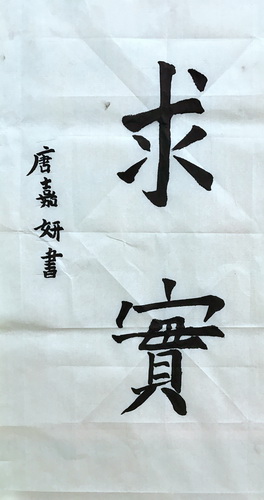 求實
唐嘉妍書